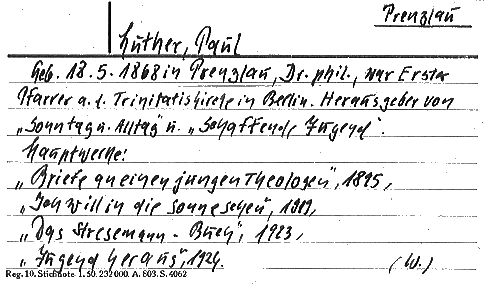 Prenzlau
Luther, Paul
Geb. 18.5.1868 in Prenzlau, Dr. phil., war Erster
Pfarrer a. d. Trinitatiskirche in Berlin. Herausgeber von
„Sonntag u. Alltag" u. „Schaffende Jugend".
Hauptwerke:
„Briefe an einen jungen Theologen", 1895,
„Ich will in die Sonne sehen", 1919,
„Das Stresemann-Buch", 1923,
„Jugend heraus", 1924.
(W.)
Reg. 10. Stichnote 1. 50. 232000. A. 603. S. 4062